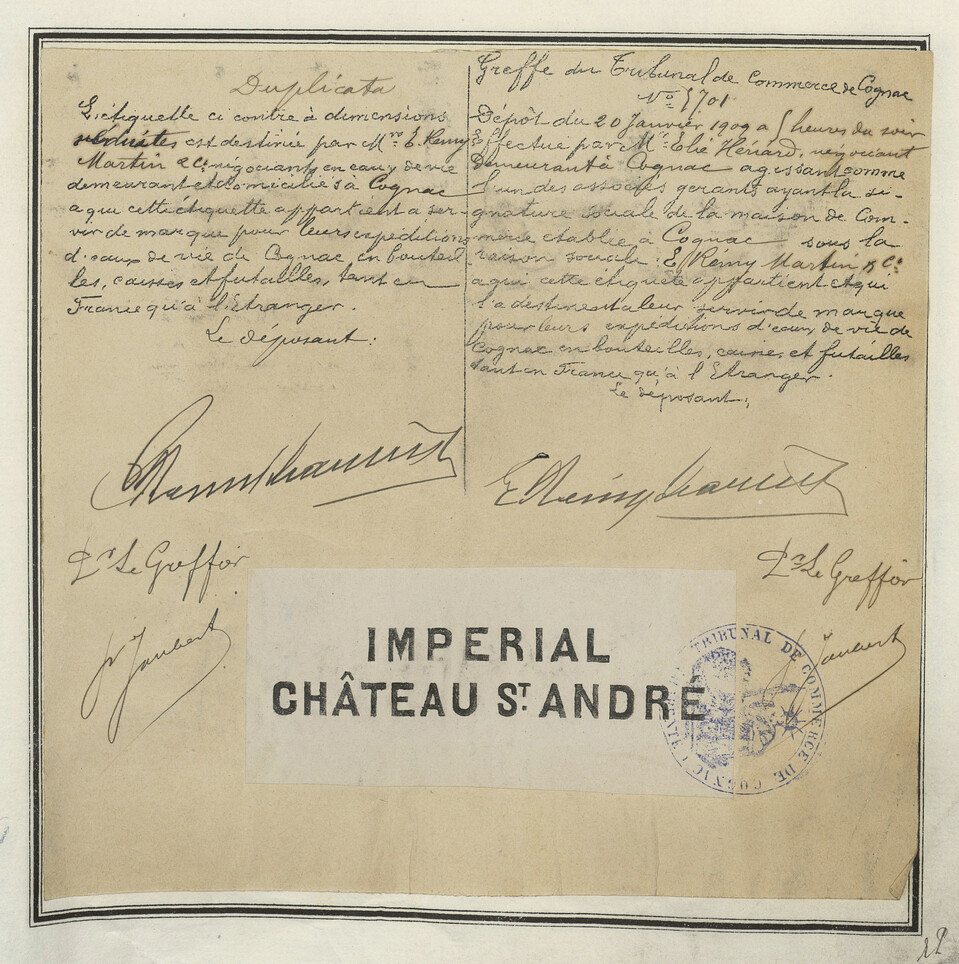 Duplicata
L'étiquette ci contre à dimensions
réduites est destinée par Mrs E. Remy
Martin & Cie négociants en eaux de vie
demeurant et domiciliés à Cognac
a qui cette étiquette appartient a ser-
vir de marque pour leurs expeditions
d'eaux de vie de Cognac, en bouteil
les, caisses et futailles, tant en
France qu'à l'Etranger.
Le déposant:
E Remy Martin
Pr Le Greffier
Joubert
Greffe du Tribunal de Commerce de Cognac
No 5701
Dépôt du 20 Janvier 1909 a 5 heures du soir
Effectue par Mr Elie Hériard, négociant
demeurant à Cognac agissant comme
l'un des associés gerants ayant la si-
gnature sociale de la maison de Com-
merce etablie à Cognac sous la
raison sociale: E. Rémy Martin & Cie
a qui cette étiquete appartient et qui
l'a destinent a leur servir de marque
pour leurs expéditions d'eaux de vie de
Cognac en bouteilles, caisses et futailles
tant en France qu'à l'Etranger.
Le déposant;
E Remy Martin
Pr Le Greffier
Joubert
IMPERIAL
CHÂTEAU ST ANDRÉ
TRIBUNAL DE COMMERCE DE COGNAC
22